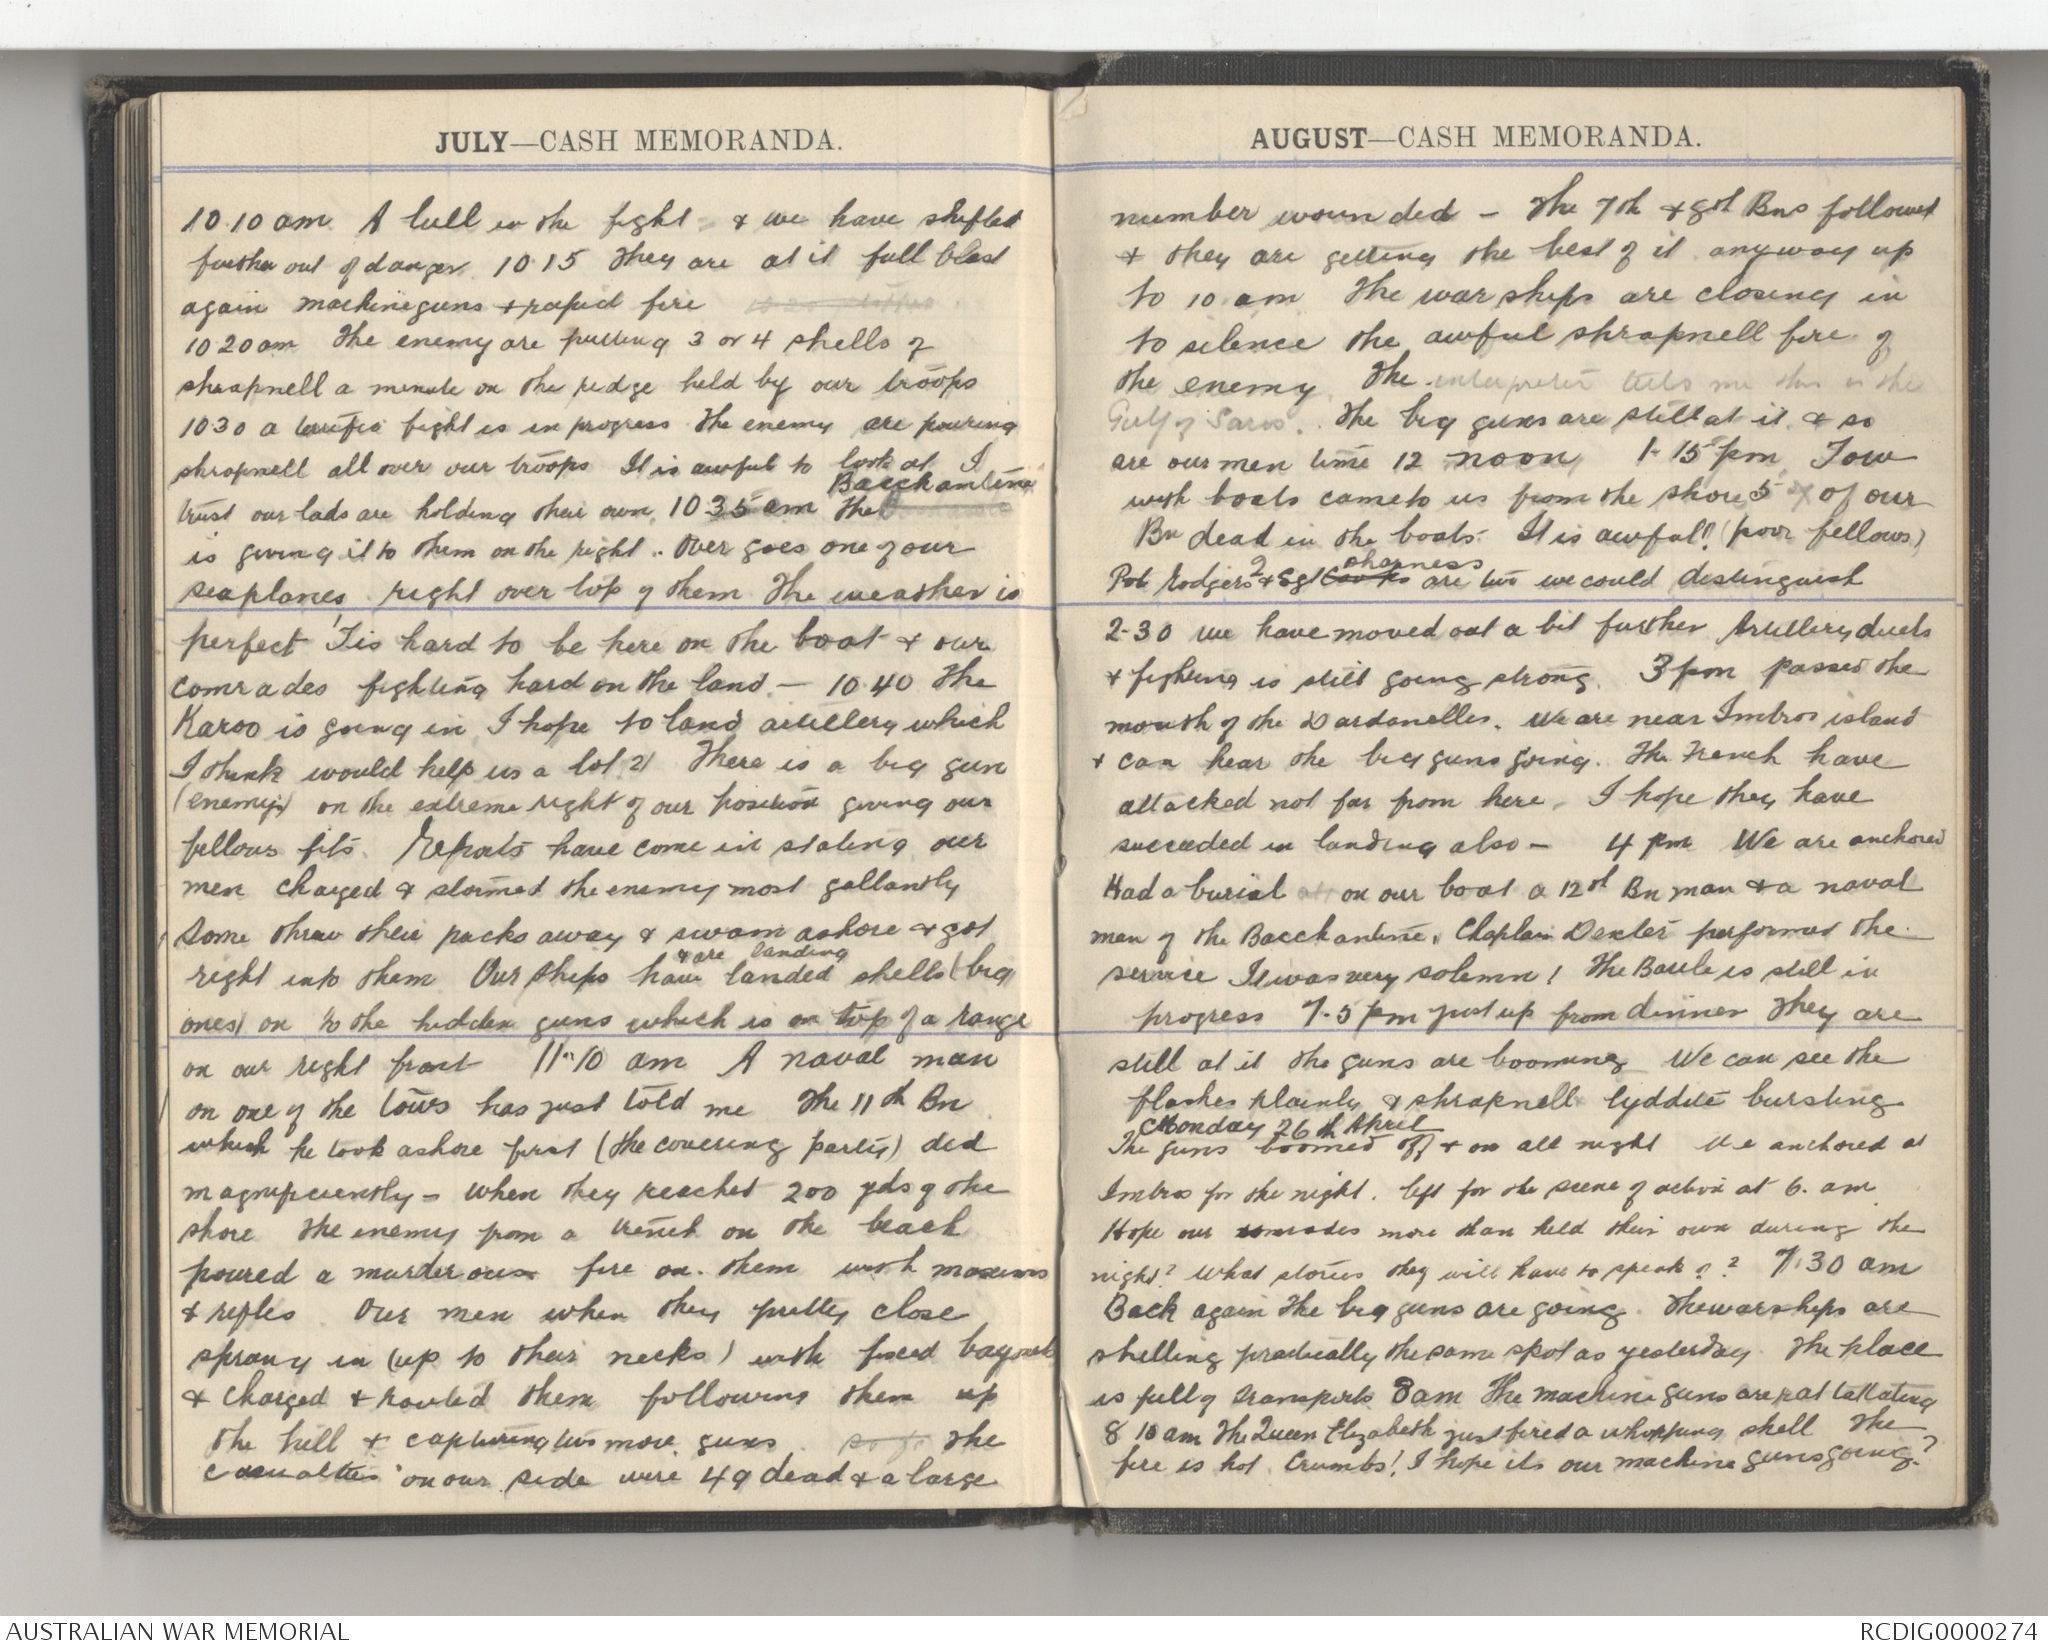 JULY—CASH MEMORANDA.
10.10 am A lull in the fight & we have shifted
further out of danger. 10.15 They are at it full blast
again machineguns & rapid fire
10 20 am The enemy are putting 3 or 4 shells of
shrapnell a minute on the ridge held by our troops
10 30 a terrific fight is in progress The enemy are pouring
shrapnell all over our troops It is awful to look at I
Bacchantine
trust our lads are holding their own. 10 35 am The
is giving it to them on the right. Over goes one of our
seaplanes right over top of them The weather is
perfect 'Tis hard to be here on the boat & our
comrades fighting hard on the land – 10.40 The
Karoo is going in I hope to land artillery which
I think would help us a lot There is a big gun
(enemy's) on the extreme right of our position giving our
fellows fits. Reports have come in stating our
men charged & stormed the enemy most gallantly
Some threw their packs away & swam ashore & got
& are landing
right into them Our ships have landed shells (big
ones) on to the hidden guns which is on top of a range
on our right front 11.10 am A naval man
on one of the tows has just told me The 11th Bn
which he took ashore first (the covering party) did
magnificiently – when they reached 200 yds of the
shore The enemy from a trench on the beach
poured a murderous fire on them with maxims
& rifles Our men when they pretty close
sprang in (up to their necks) with fixed bayonets
& charged & routed them following them up
the hill & capturing two more guns The
casualties on our side were 49 dead & a large
AUGUST—CASH MEMORANDA.
number wounded – The 7th & 8th Bns followed
& they are getting the best of it anyway up
to 10 am The war ships are closing in
to silence the awful shrapnell fire of
the enemy. The interpreter tells me this is the
Gulf of Saros. The big guns are still at it & so
are our men time 12 noon 1-15 pm Tow
with boats came to us from the shore 5 of our
Bn dead in the boats. It is awful! (poor fellows)
2 oharness
Pvt Rodgers & Sgt are two we could distinguish
2-30 we have moved out a bit further Artillery duels
& fighting is still going strong. 3 pm passed the
mouth of the Dardanelles. We are near Imbros island
& can hear the big guns going. The French have
attacked not far from here. I hope they have
succeeded in landing also – 4 pm We are anchored
Had a burial on our boat a 12th Bn man & a naval
man of the Bacchantine. Chaplain Dexter performed the
service It was very solemn! The Battle is still in
progress 7-5 pm just up from dinner They are
still at it the guns are booming We can see the
flashes plainly & shrapnell lyddite bursting
Monday 26th April
The guns boomed off & on all night We anchored at
Imbros for the night. left for the scene of action at 6. am
Hope our comrades more than held their own during the
night? What stories they will have to speak of? 7.30 am
Back again The big guns are going. The warships are
shelling practically the same spot as yesterday. The place
is full of transports 8 am The machine guns are rat tattating
8 10 am The Queen Elizabeth just fired a whopping shell The
fire is hot. Crumbs! I hope its our machine guns going?
AUSTRALIAN WAR MEMORIAL
RCDIG0000274